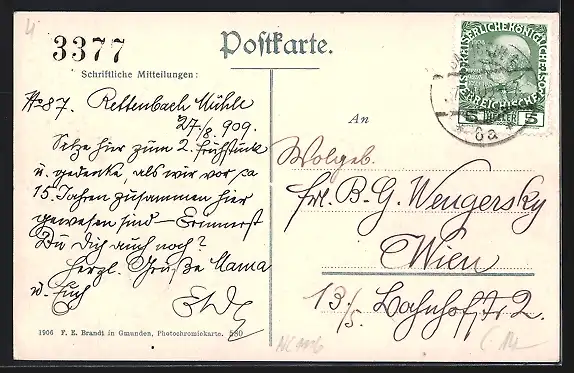 3377
Postkarte.
Schriftliche Mitteilungen:
No 87. Rettenbach Mühle
27./8. 909.
Sitze hier zum 2. Frühstück
u. gedenke, als wir vor ca
15 Jahren zusammen hier
gewesen sind – Erinnerst
Du Dich auch noch?
Herzl. Grüße Mama
u. Euch
An
Wolgeb.
Frl. B. G. Wengersky
Wien
13./5. Bahnhofstr 2.
KAISERLICHE KÖNIGLICHE
ÖSTERREICHISCHE
5 HELLER 5
6a
1906 F. E. Brandt in Gmunden, Photochromiekarte. 580